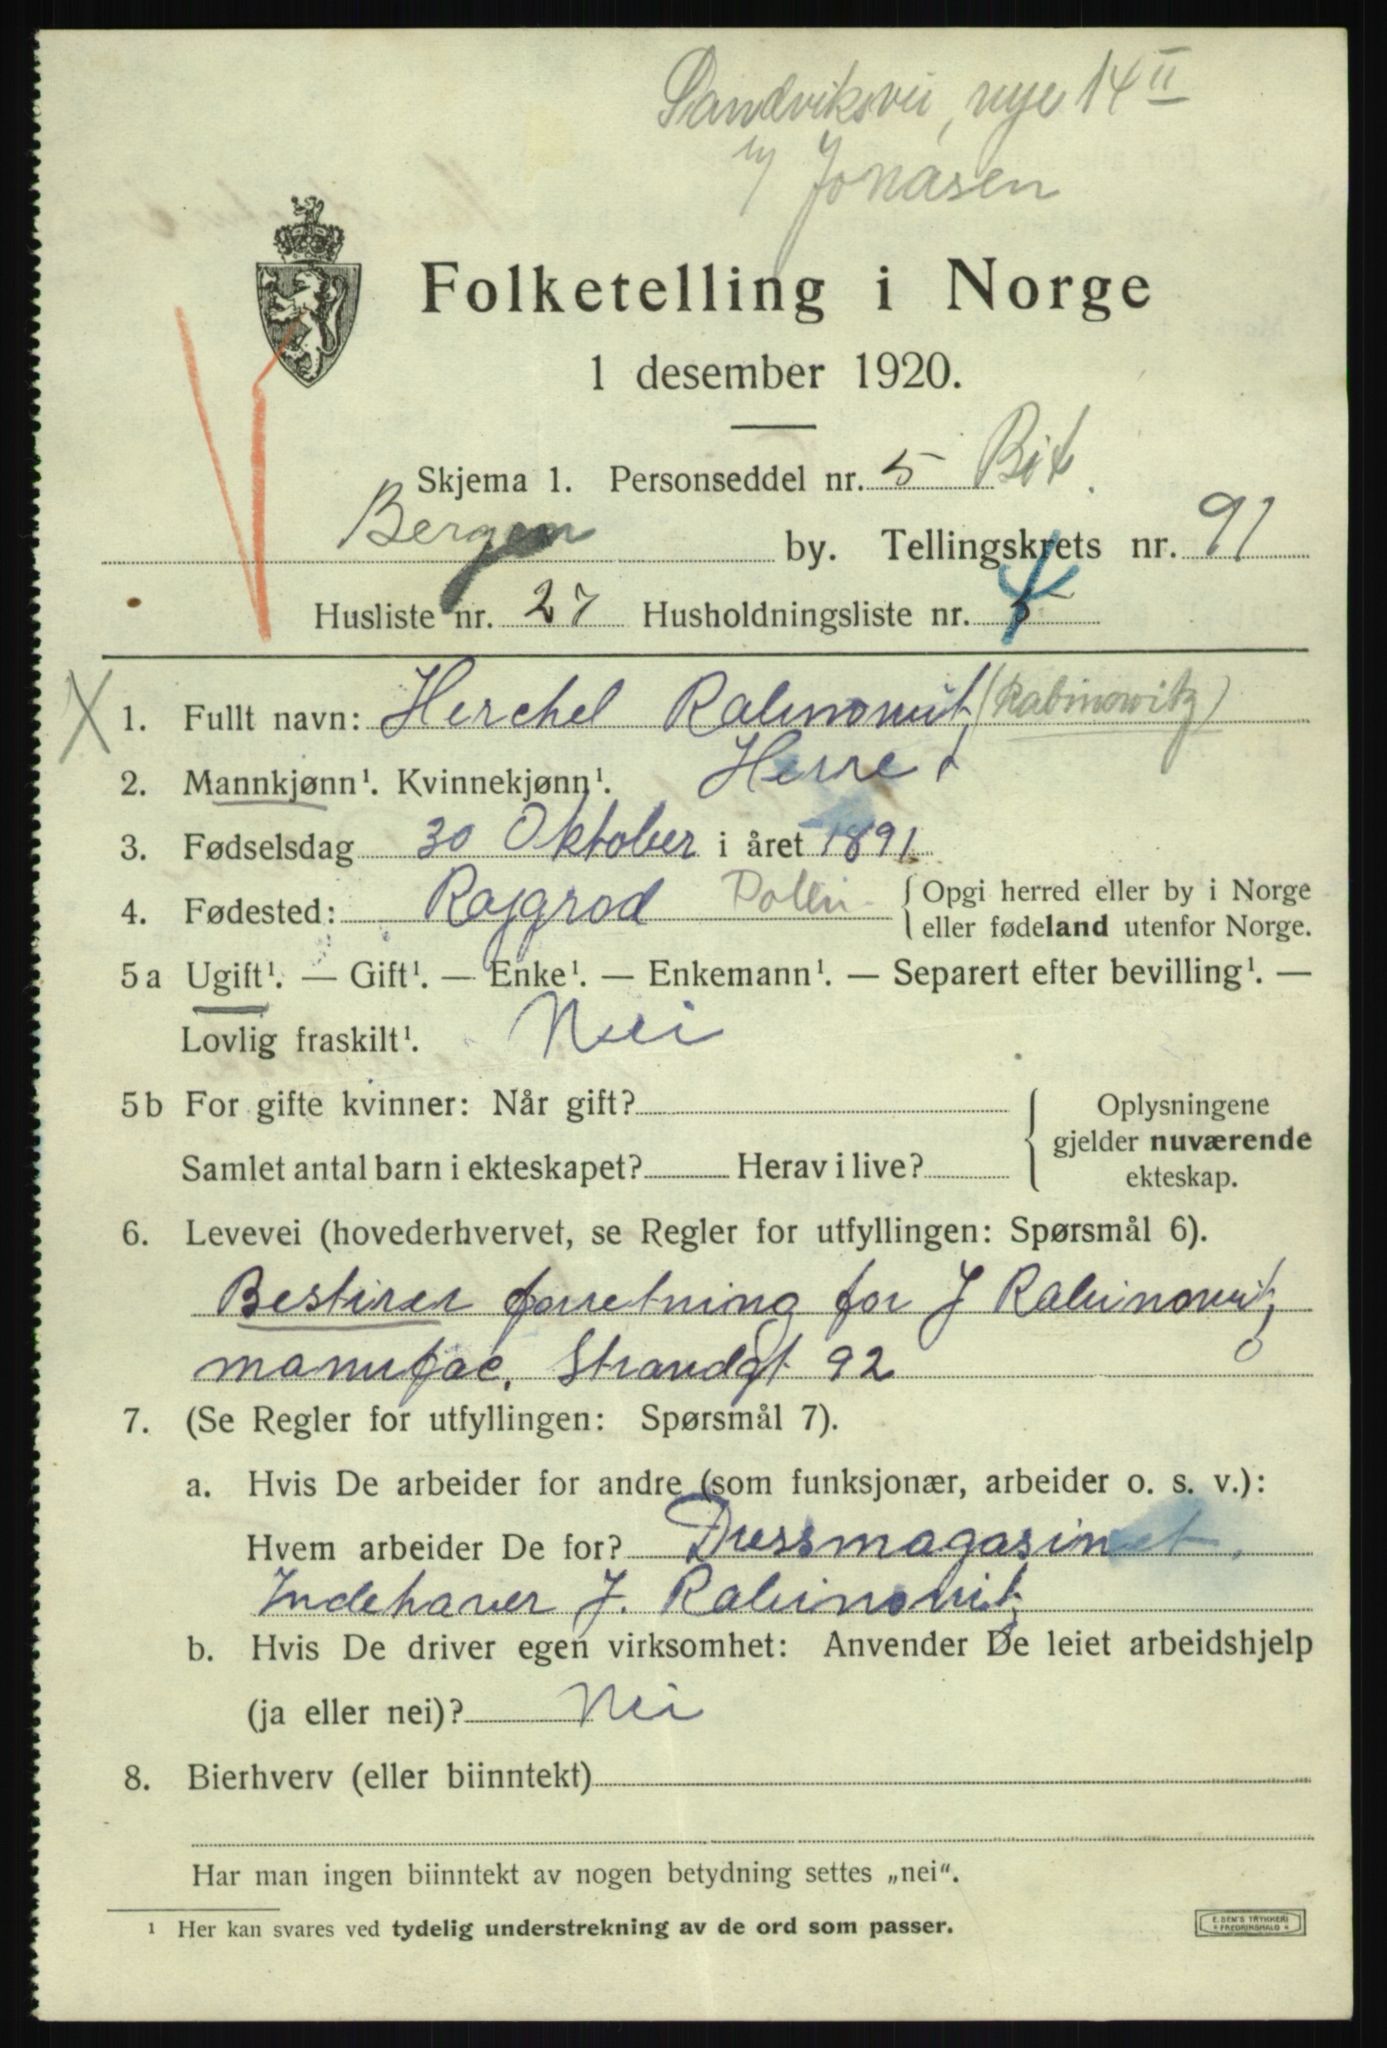 Sandviksvei, nye 14 II
Jonasen
Folketelling i Norge
1 desember 1920.
Skjema 1. Personseddel nr. 5
Bergen by. Tellingskrets nr. 91
Husliste nr. 27 Husholdningsliste nr. 5
X 1. Fullt navn: Herchel Rabinowitz (Rabinowitz)
2. Mannkjønn¹. Kvinnekjønn¹. Herre
3. Fødselsdag 30 Oktober i året 1891
4. Fødested: Rajgrod { Opgi herred eller by i Norge
eller fødeland utenfor Norge.
5a Ugift¹. — Gift¹. — Enke¹. — Enkemann¹. — Separert efter bevilling¹. —
Lovlig fraskilt¹. Nei
5b For gifte kvinner: Når gift? { Oplysningene
gjelder nuværende
Samlet antal barn i ekteskapet? Herav i live? ekteskap.
6. Levevei (hovederhvervet, se Regler for utfyllingen: Spørsmål 6).
Bestirer forretning for J Rabinowitz
manufac. Strandgt 92
7. (Se Regler for utfyllingen: Spørsmål 7).
a. Hvis De arbeider for andre (som funksjonær, arbeider o. s. v.):
Hvem arbeider De for? Dressmagasinet.
Indehaver J. Rabinowitz
b. Hvis De driver egen virksomhet: Anvender De leiet arbeidshjelp
(ja eller nei)? Nei
8. Bierhverv (eller biinntekt)
Har man ingen biinntekt av nogen betydning settes „nei“.
¹ Her kan svares ved tydelig understrekning av de ord som passer.
E. SEM'S TRYKKERI
* FREDRIKSHALD *